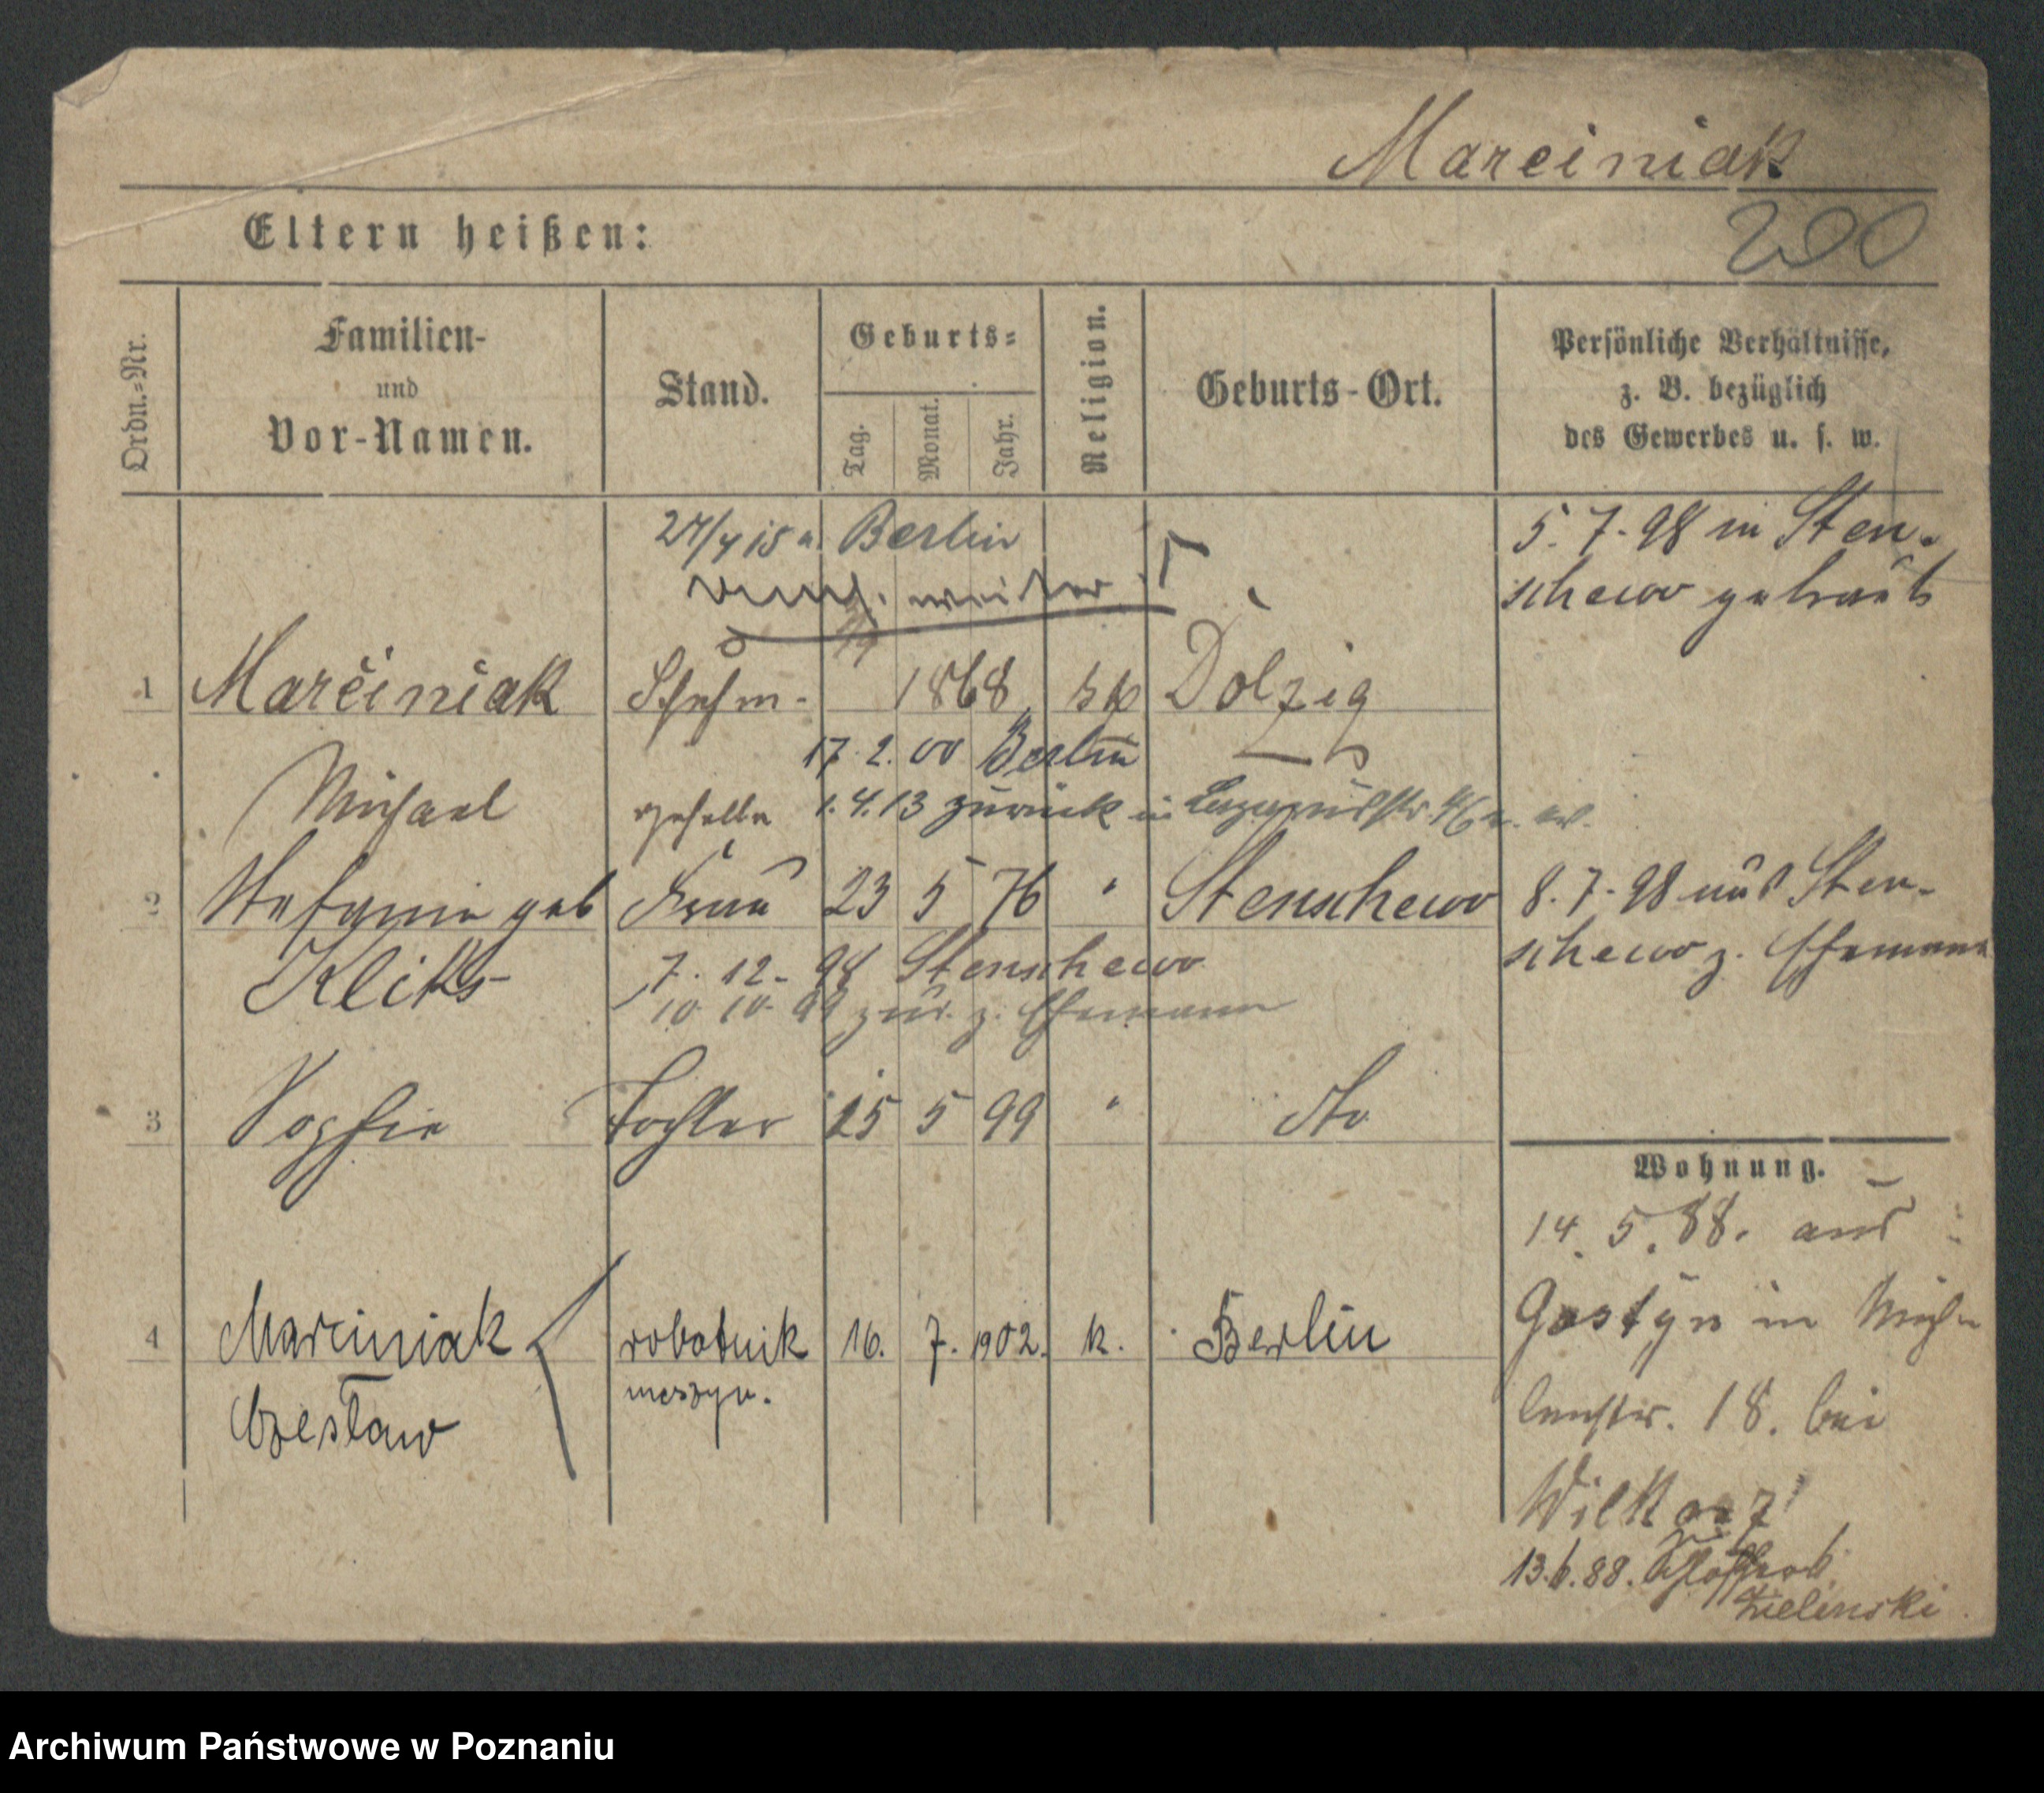 Marciniak
200
Eltern heißen:
Ordn.=Nr.
Familien-
und
Vor-Namen.
Stand.
Geburts=
Tag.
Monat.
Jahr.
Religion.
Geburts-Ort.
Persönliche Verhältnisse,
z. B. bezüglich
des Gewerbes u. s. w.
Berlin
weiter
5.7.98 in Sten-
schewo getraut
1 Marciniak 1868 Dolzig
17.2.00 Berlin
Michael geselle 1.4.13 zurück in
2 Stefania geb Frau 23 5 76 " Stenschewo
8.7.98 aus Sten-
schewo z. Ehemann
Kliks
7.12.98 Stenschewo
10.10.99 zur. z. Ehemann
3 Sophie Tochter 15 5 99 " dto
Wohnung.
14.5.88. aus
Gostyn in
18. bei
4 Marciniak robotnik 16. 7. 1902. k. Berlin
Czesław
13.6.88.
Zielinski
Archiwum Państwowe w Poznaniu